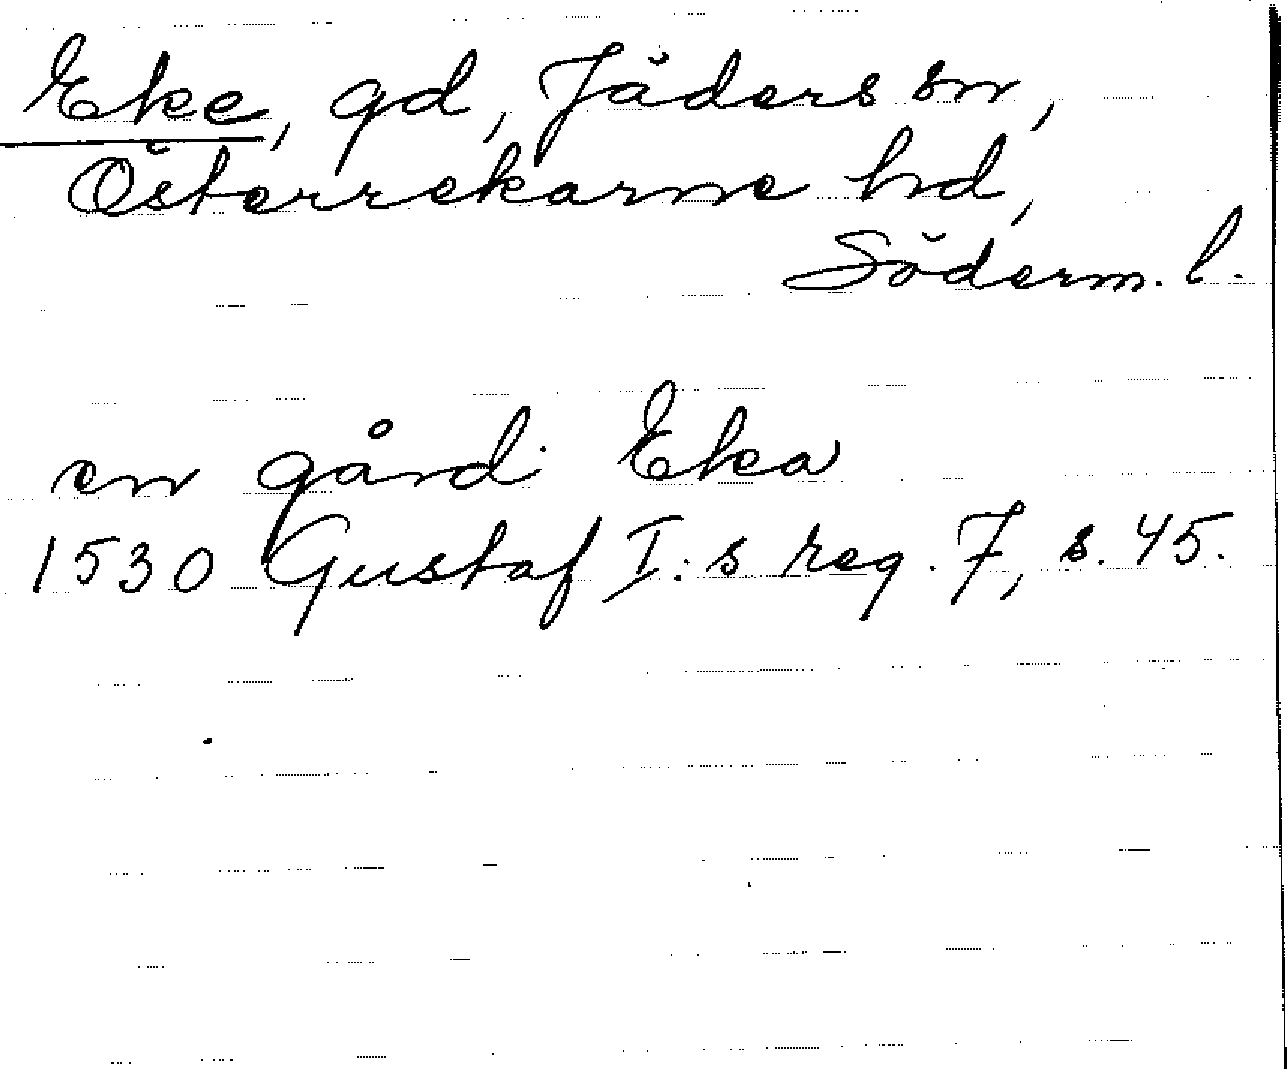 Eke, gd, Jäders sn,
Österrekarne hd,
Söderm. l.
en gård i Eka
1530 Gustaf I:s reg. 7, s. 45.